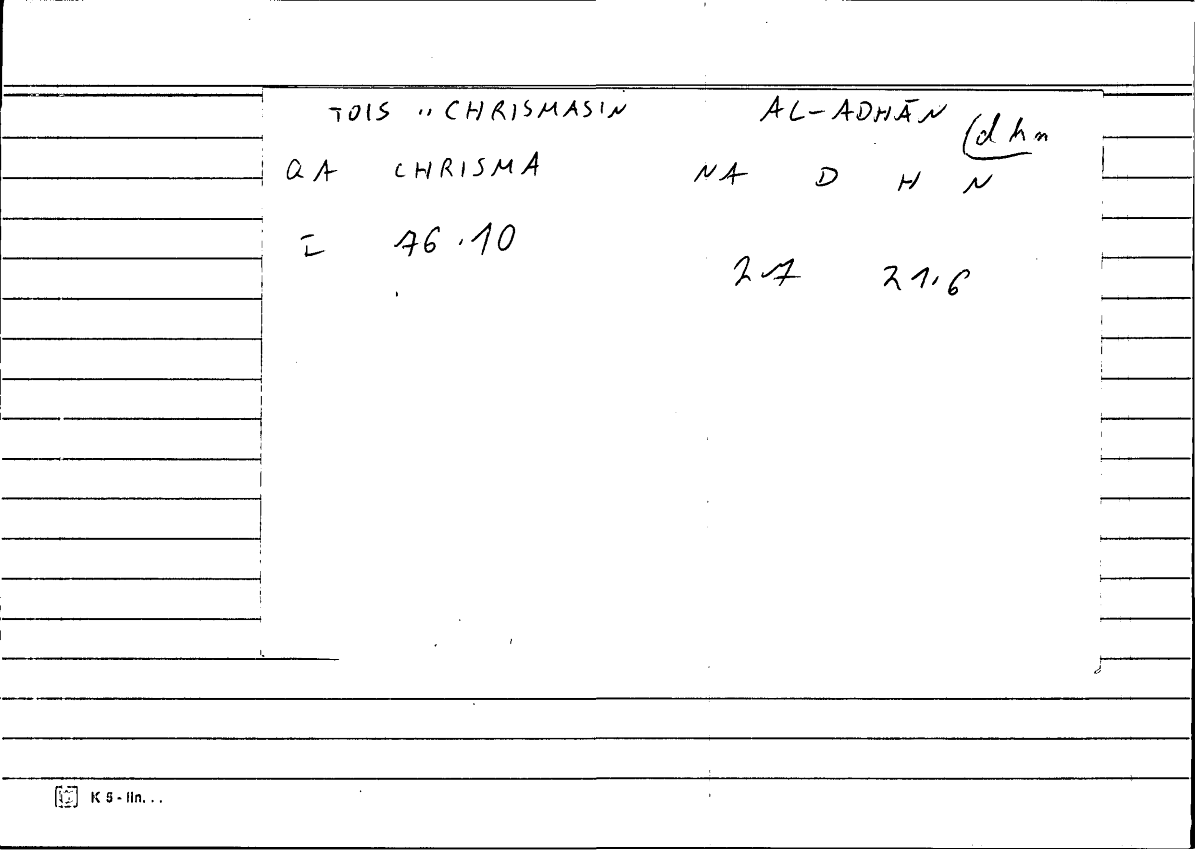 TOIS .. CHRISMASIN AL-ADHĀN (dhn
QA CHRISMA NA D H N
I 76.10
27 21.6
K 5 - lin...